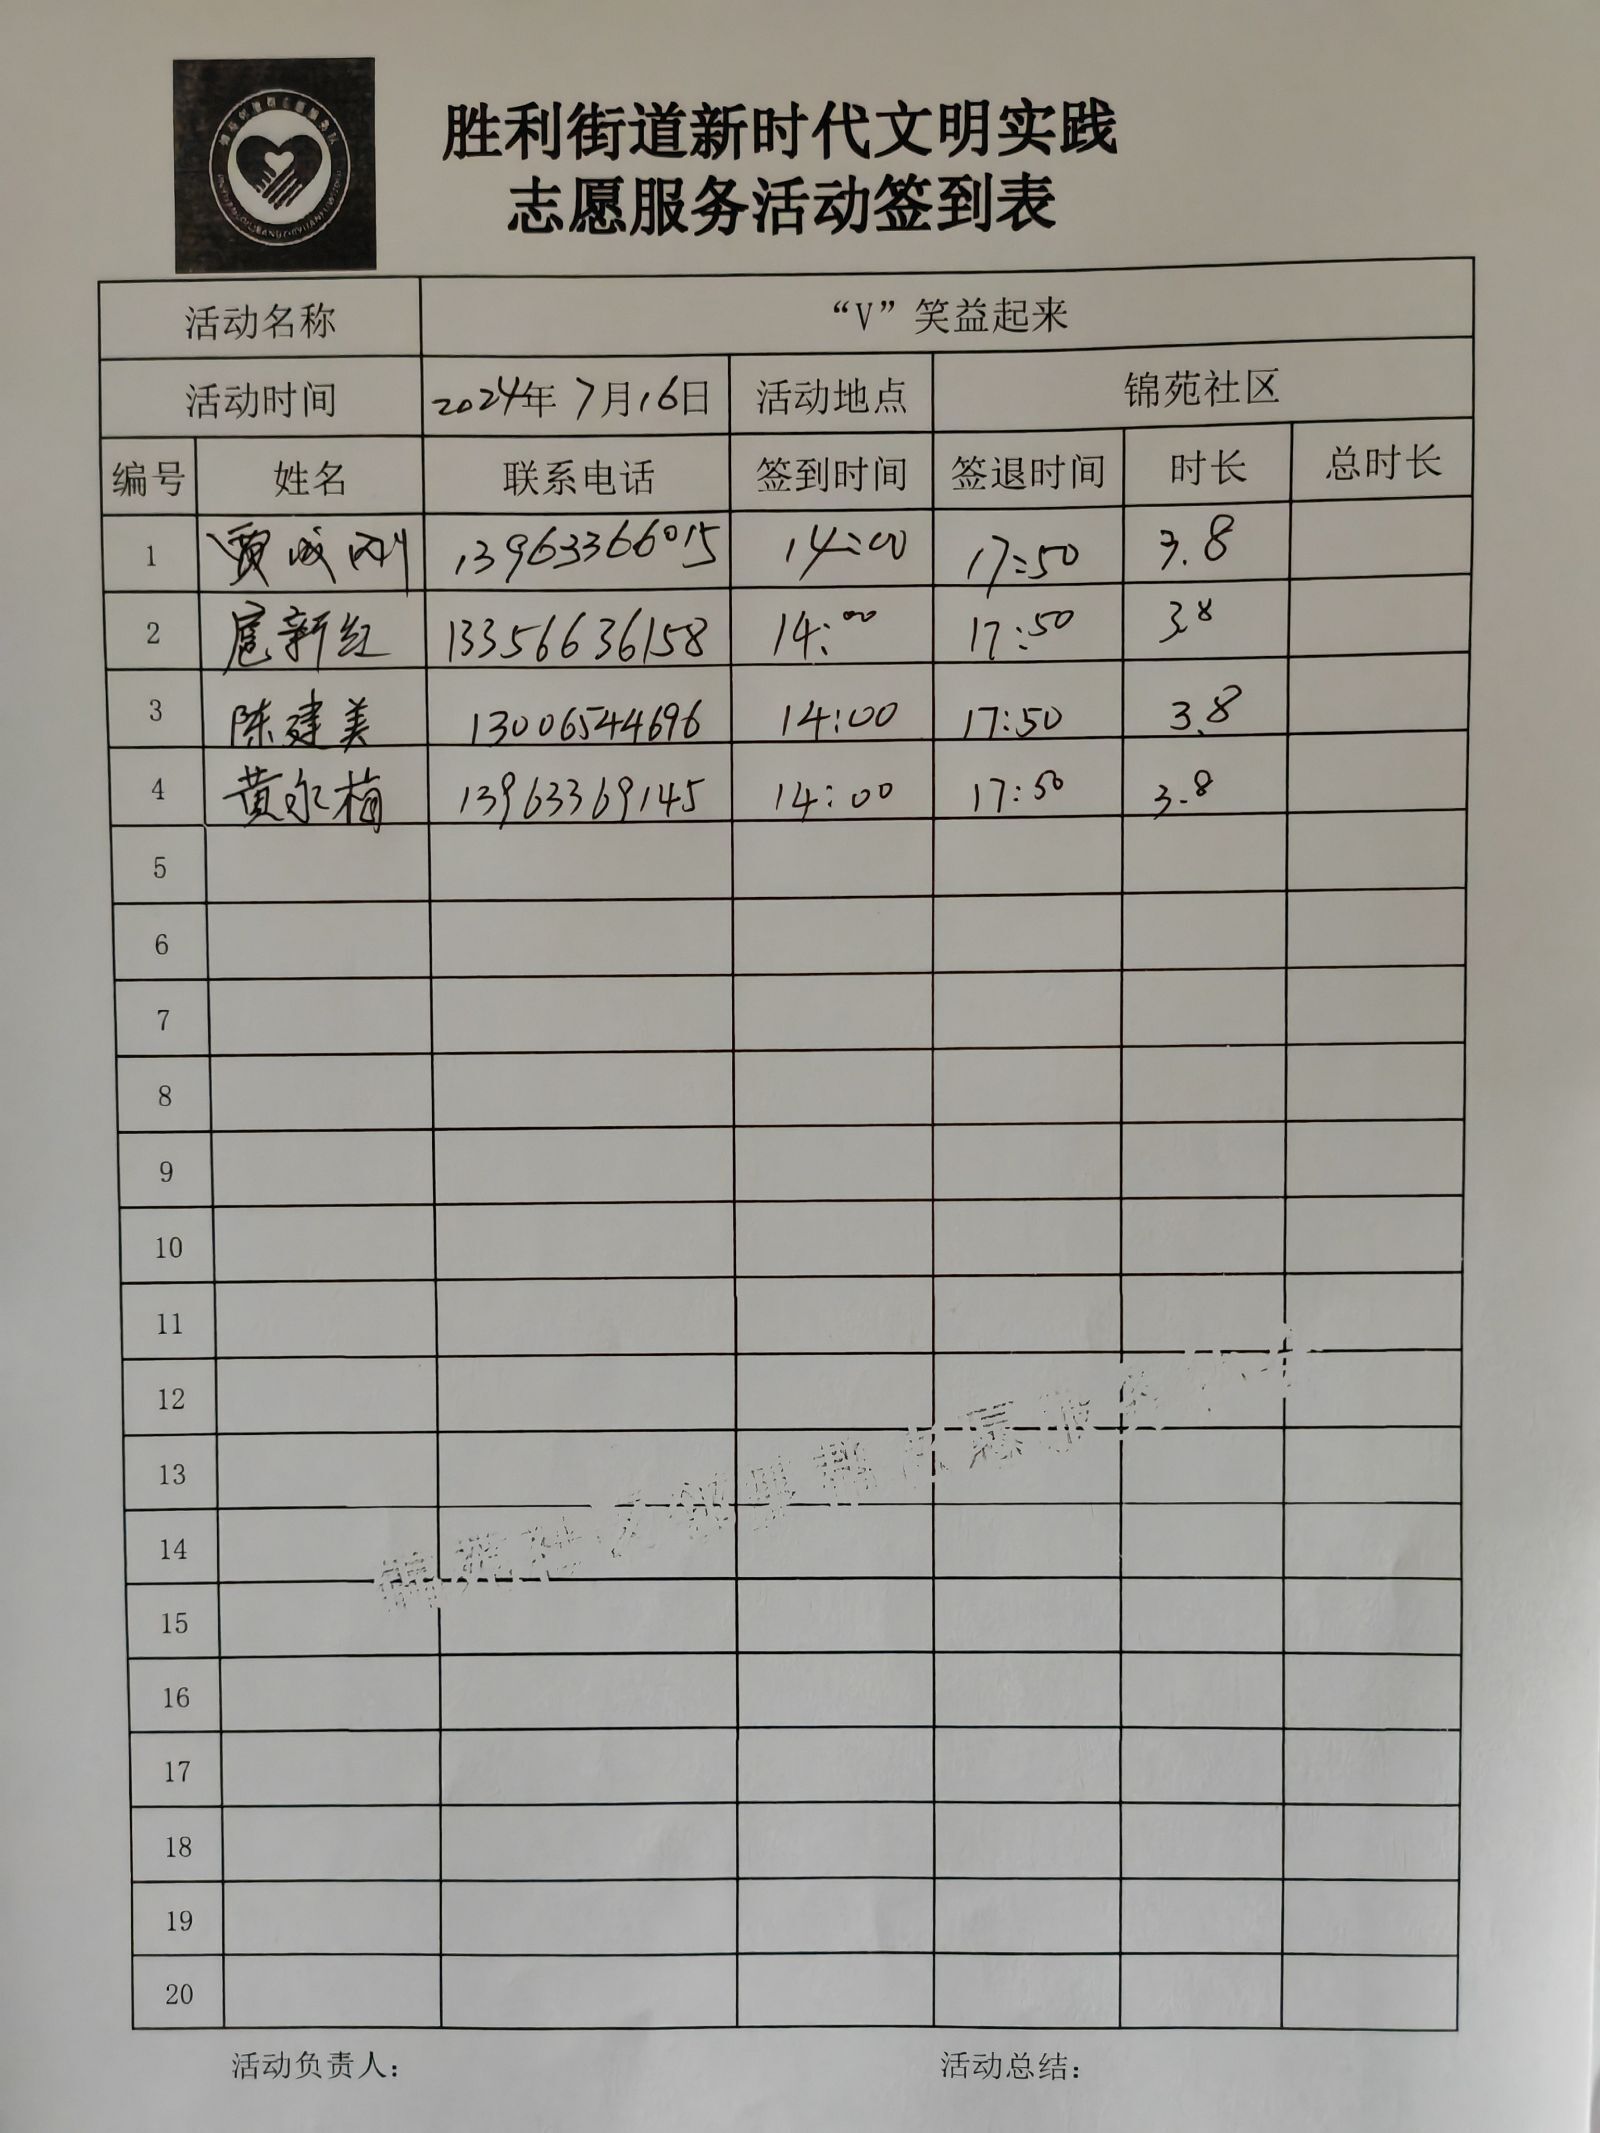 胜利街道新时代文明实践
志愿服务活动签到表
活动名称 “V”笑益起来
活动时间 2024年 7月16日 活动地点 锦苑社区
编号 姓名 联系电话 签到时间 签退时间 时长 总时长
1 贾成刚 13963366015 14:00 17:50 3.8
2 扈新红 13356636158 14:00 17:50 3.8
3 陈建美 13006544696 14:00 17:50 3.8
4 黄永梅 13963369145 14:00 17:50 3.8
5
6
7
8
9
10
11
12
13
14
15
16
17
18
19
20
活动负责人: 活动总结: